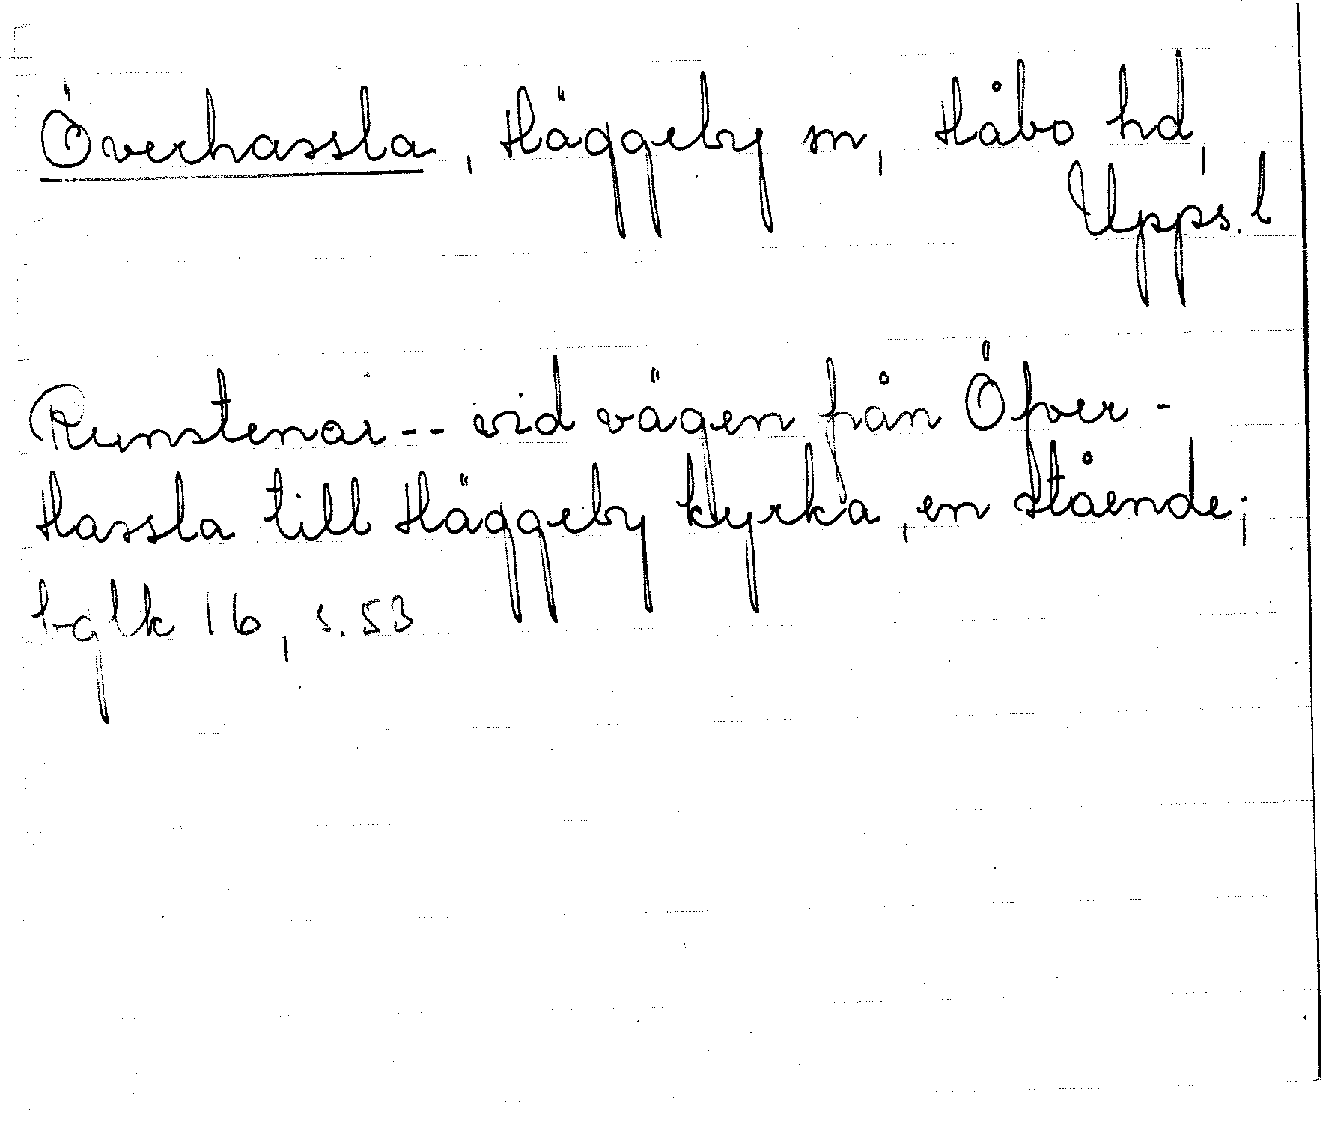 Överhassla, Häggeby sn, Håbo hd,
Upps. l
Runstenar -- vid vägen från Öfver-
Hassla till Häggeby kyrka, en stående;
bglk 16, s. 53